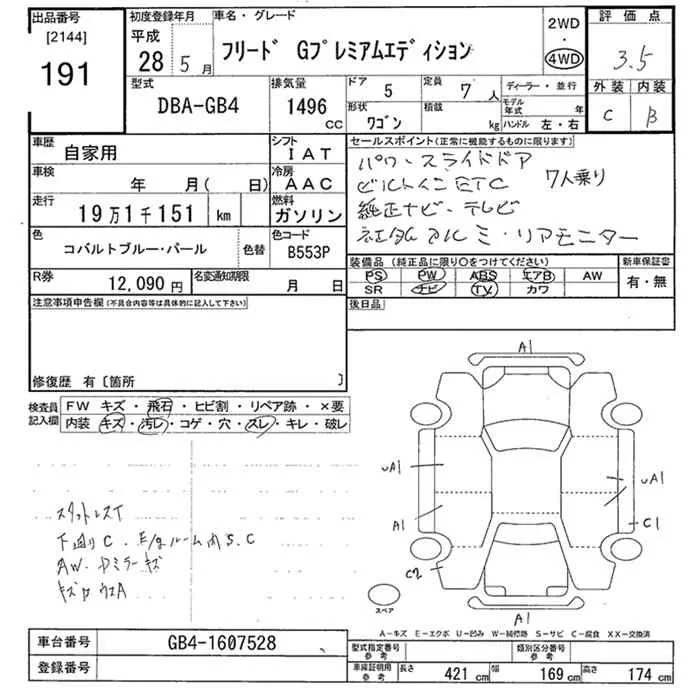 出品番号 初度登録年月 車名・グレード 2WD 評価点
[2144] 平成 4WD
191 28 5月 フリード Gプレミアムエディション 3.5
型式 排気量 ドア 定員 ディーラー・並行 外装 内装
DBA-GB4 1496 CC 5 7人 モデル年式 年 C B
形状 積載
ワゴン kg ハンドル 左・右
車歴 シフト セールスポイント(正常に機能するものに限ります)
自家用 IAT パワースライドドア
車検 冷房 ビルトインETC 7人乗り
年 月( 日) AAC 純正ナビ・テレビ
走行 燃料
19万1千151 km ガソリン 社外アルミ・リアモニター
色 色コード
コバルトブルー・パール 色替 B553P
装備品(純正品に限り○をつけてください) 新車保証書
PS PW ABS エアB AW 有・無
SR ナビ TV カワ
R券 12,090円 名変通知期限 月 日
後日品
注意事項申告欄(不具合内容等は具体的に記入して下さい)
修復歴 有〔箇所 〕
検査員記入欄 FW キズ・飛石・ヒビ割・リペア跡・×要
内装 キズ・汚レ・コゲ・穴・スレ・キレ・破レ
スタットレスT
下廻りC・E/gルーム内S.C
AW・ドミラーキズ
A1
uA1 uA1
A1 C1
C2
A1
スペア
A−キズ E−エクボ U−凹み W−補修跡 S−サビ C−腐食 XX−交換済
車台番号 GB4-1607528
登録番号
型式指定番号 参考 類別区分番号 参考
車庫証明用 参考 長さ 421 cm 幅 169 cm 高さ 174 cm